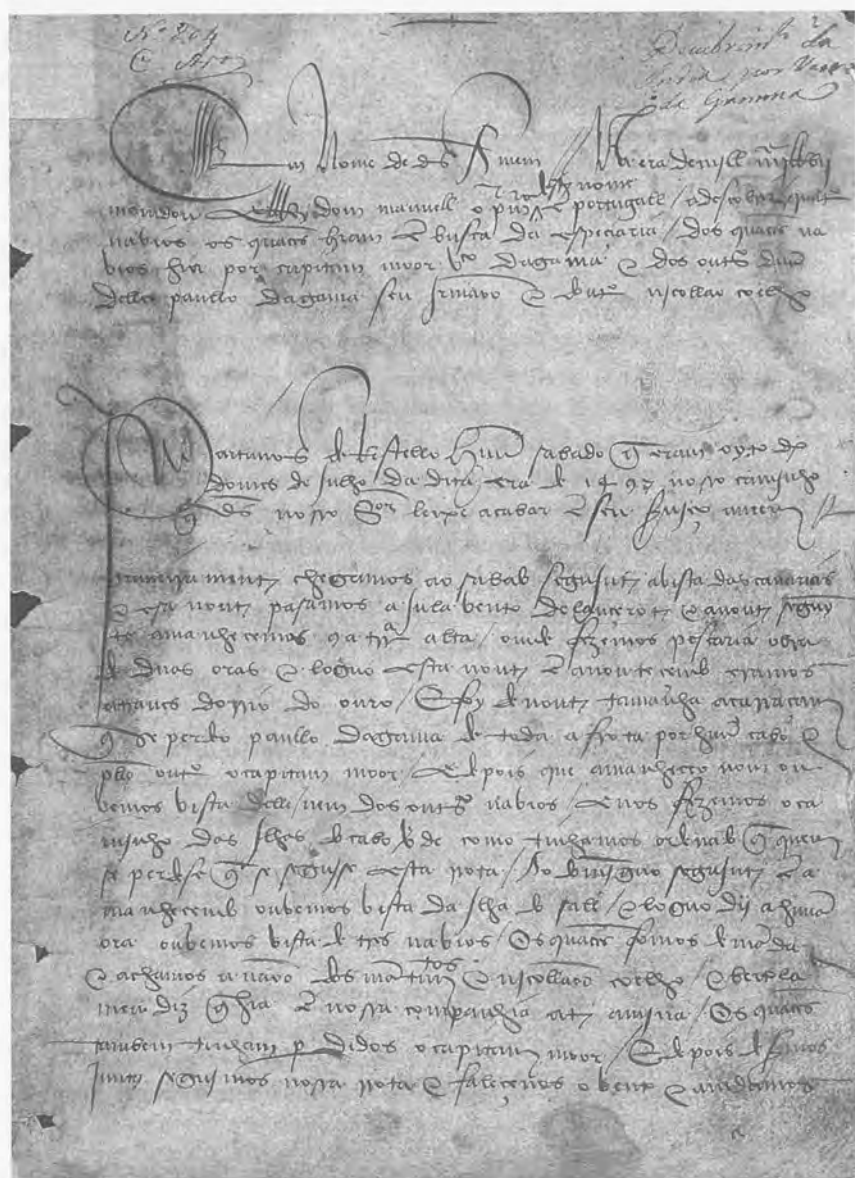 Nº 804
Descubrimᵗᵒ da
India por Vasco
da Gamma
2
Em Nome de ds Amem // Na era de mill iiijᶜ lRvij
mandou el Rey dom manuell o prº deste nome em portugall / a descobrir quatro
navios os quaees hiam em busca da especiaria / dos quaees na
vios hia por capitam moor vᶜᵒ dagama e dos outºs duus
delles paullo dagama seu Irmaoo e doutº nicollao coelho
Partimos de Restello huũ sabado q̃ eram oyto dias
do mes de Julho da dita era de 1497 nosso caminho
q̃ ds nosso Sor leixe acabar em seu serviço amem //
Primeiramente chegamos ao sabado seguinte a vista das canarias
e esa noute pasamos a Julavento de lancarote e a noute seguin
te amanhecemos com a trra alta / onde fezemos pescaria obra
de duas oras e loguo esta noute em anoutecendo eramos
atraves do rrio do ouro / E foy de noute tamanha a carraçam
q̃ se perdeo paullo dagama de toda a frota por huũ cabo e
pello outº o capitam moor / E depois que amanheceo nom ou
vemos vista delle / nem dos outºs navios / e nos fezemos o ca
minho das Ilhas do cabo verde como tinhamos ordenado q̃ quem
se perdese q̃ se seguisse esta rrota / Ao dominguo seguinte em a
manhecendo ouvemos vista da Ilha do sall / e loguo dij a huũa
ora ouvemos vista de tres navios / os quaees fomos demandar
e achamos a naoo dos mantimentos e nicollaoo coelho / e bertola
meu diz q̃ hia em nossa companhia atee a mina / Os quaees
tambem tinham perdidos o capitam moor / E depois de sermos
juntos seguimos nossa rrota e faleceonos o vento e andamos